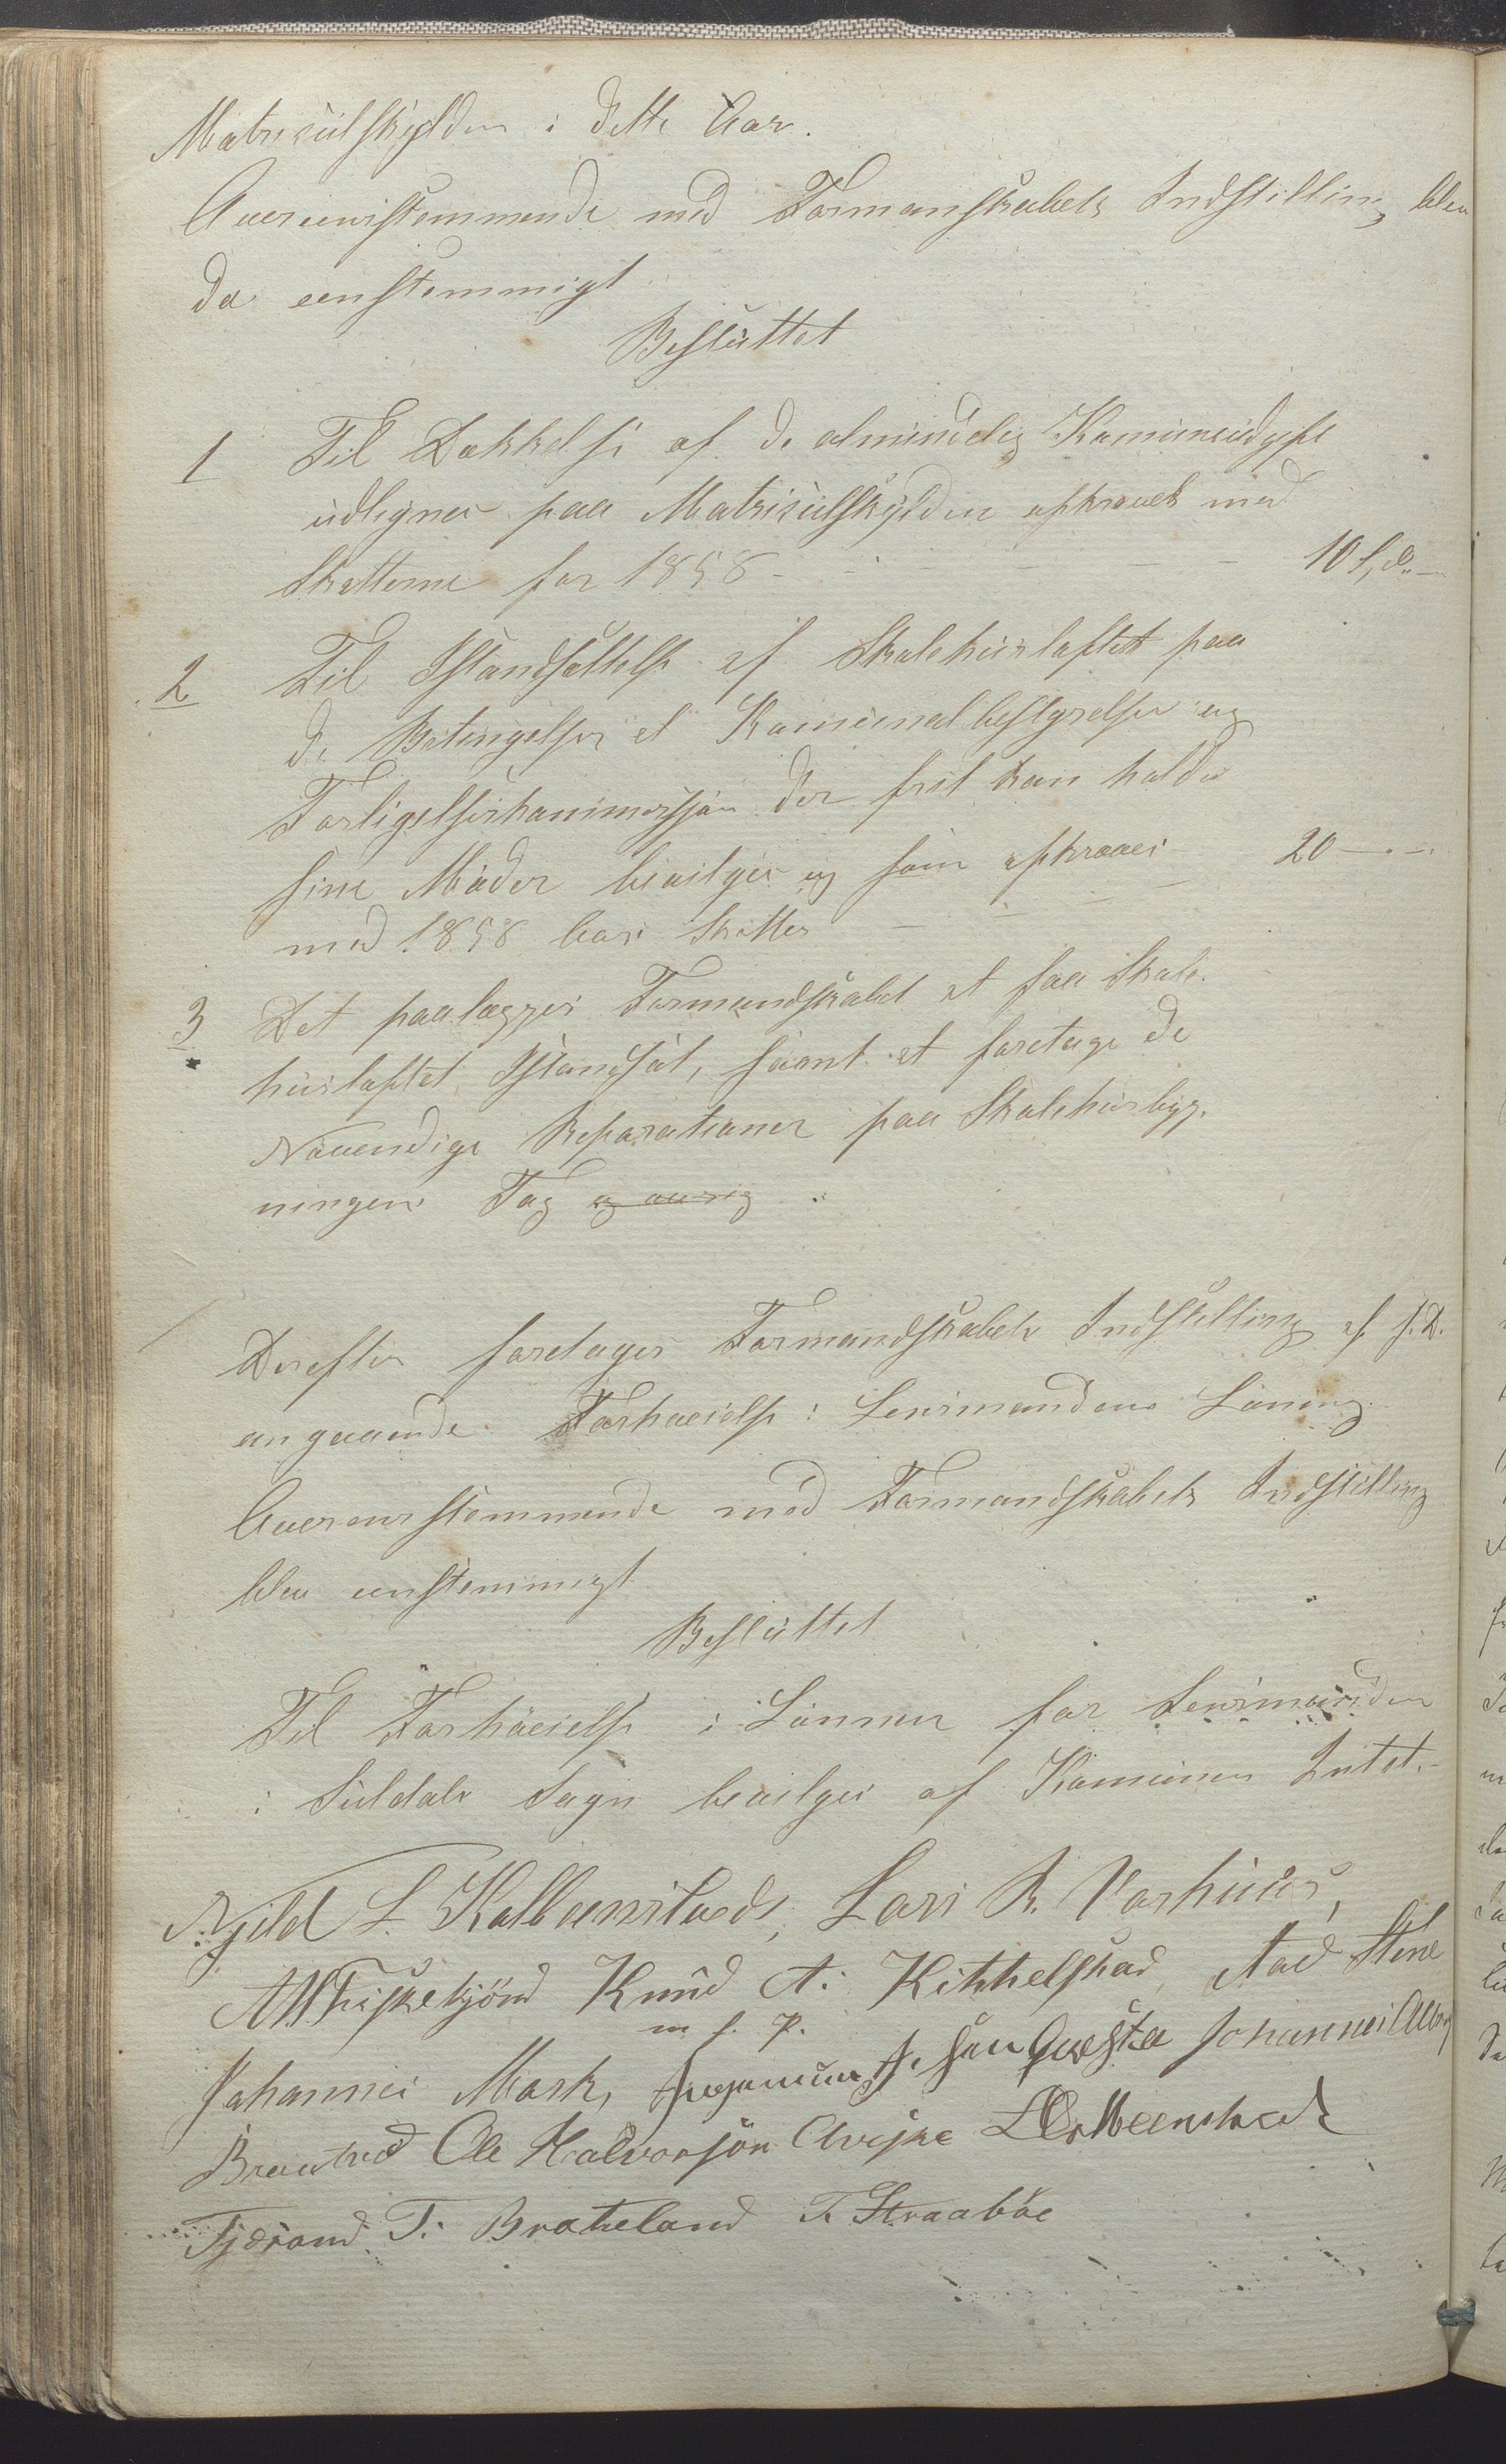 Matrikülskylden i dette Aar.
Overeensstemmende med Formanskabets Indstilling blev
da eenstemmigt
Beslüttet
1 Til Dækkelse af de almindelig Komuneudgift
üdlignes paa Matrikülskylden opkrævet med
Skatterne for 1858 - - - - - - 10 s,
2 Til Istandsættelse af Skolehüsloftet paa
de Betingelser at Komunalbestyrelsen og
Forligelseskommissjon der frit kan holde
sine Møder bevilges og som opkræves 20 — . —
med 1858 Aars Skatter - - - -
3 Det paalægges Formandskabet at faa Skole-
hüsloftet Istandsat, samt at foretage de
Nøvendige Reparationer paa Skolehüsbyg-
ningens Tag og øvrig
Derefter foretages Formandskabets Indstilling af s. D.
angaaende Forhøielse i Lensmandens Løning.
Overensstemmende med Formandskabets Indstilling
blev eenstemmigt
Beslüttet
Til Forhøielse i Lønnen for Lensmanden
i Süldals Sogn bevilges af Komünen Intet.-
Njeld L. Kalbeenstvedt, Lars R. Vorhüus,
Knud A. Kihhelstad, Aad Stene
m. f. P.
Johannes Mosk, Johannes
Braatveid Ole Halvorsjön L Colbeenstvedt
Tjerand T. Brateland T. Straabøe